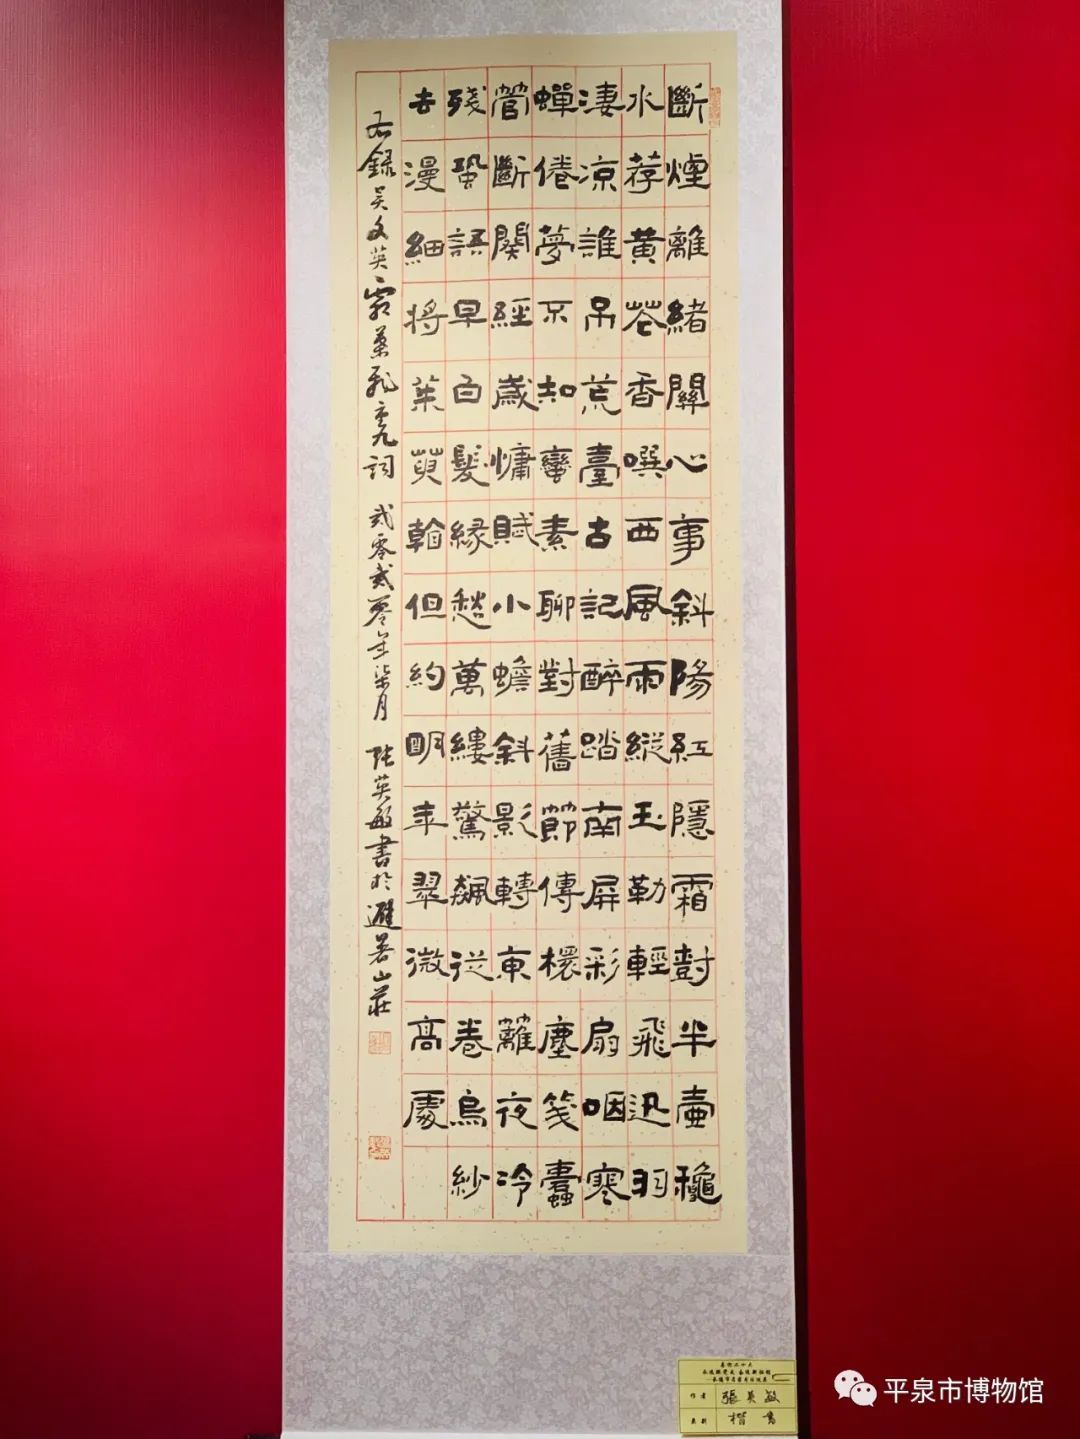 斷煙離緒關心事斜陽紅隱霜封半壺穐
水荐黃花香噀西風雨縱玉勒輕飛迅羽
淒涼誰吊荒臺古記醉踏南屏彩扇咽寒
蟬倦夢不知蠻素聊對舊節傳櫰塵箋蠹
管斷闋經歲慵賦小蟾斜影轉東蘺夜冷
殘蛩語早白髮緣愁萬縷驚飆從卷烏紗
去漫細將茱萸翰但約明年翠微高處
右錄吳文英霜葉飛重九詞 貳零貳零年柒月 張英敏書於避暑山莊
作者 張英敏
類別 楷書
平泉市博物馆